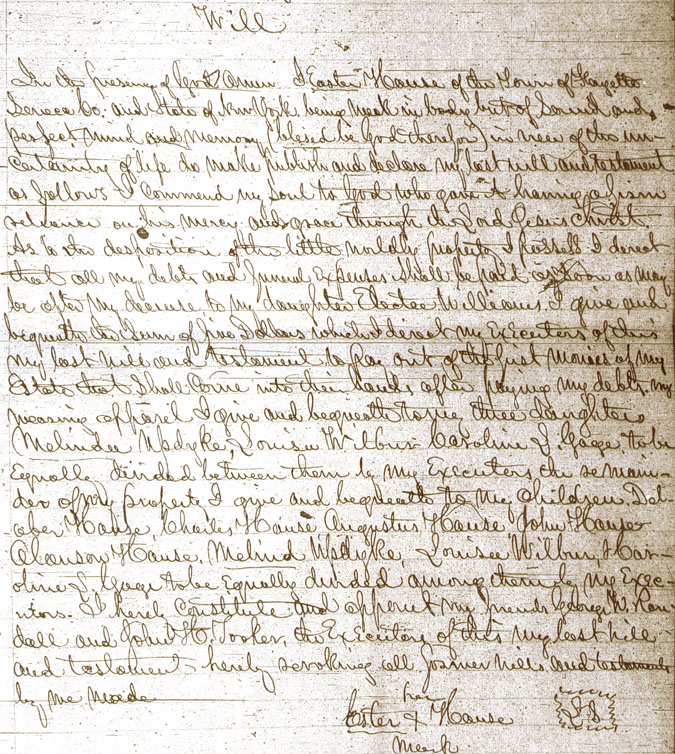 Will
In the presence of God Amen. I Easter House of the Town of Fayette
Seneca Co. and State of New York being weak in body but of sound and
perfect mind and memory (blessed be God therefor) in view of the un-
certainty of life do make publish and declare my last will and testament
as follows I commend my soul to God who gave it having a firm
reliance on his mercy and grace through the Lord Jesus Christ
As to the desposition of the little worldly property I possess I direct
that all my debts and funeral expenses shall be paid as soon as may
be after my decease to my daughter Electa Williams I give and
bequeath the sum of five Dollars which I direct my Executers of this
my last will and testament to Pay out of the first monies of my
Estate that shall come into their hands after paying my debts. my
wearing apparel I give and bequeath to my three daughters
Melinda Updyke, Louisa Wilbur Caroline S. Gage, to be
Equally divided between them by my Executers the remain-
der of my property I give and bequeath to my Children,
House, Charles House Augustus House John House
Alanson House, Melind Updyke, Louisa Wilbur,
oline S. Gage to be Equally divided among them by my Exec-
utors. I hereby Constitute and appoint my friends George W. Ran-
dall and John H. Tooker, the Executors of this my last will
and testament hereby revoking all former wills and testaments
by me made
her
Ester X House
Mark
LS